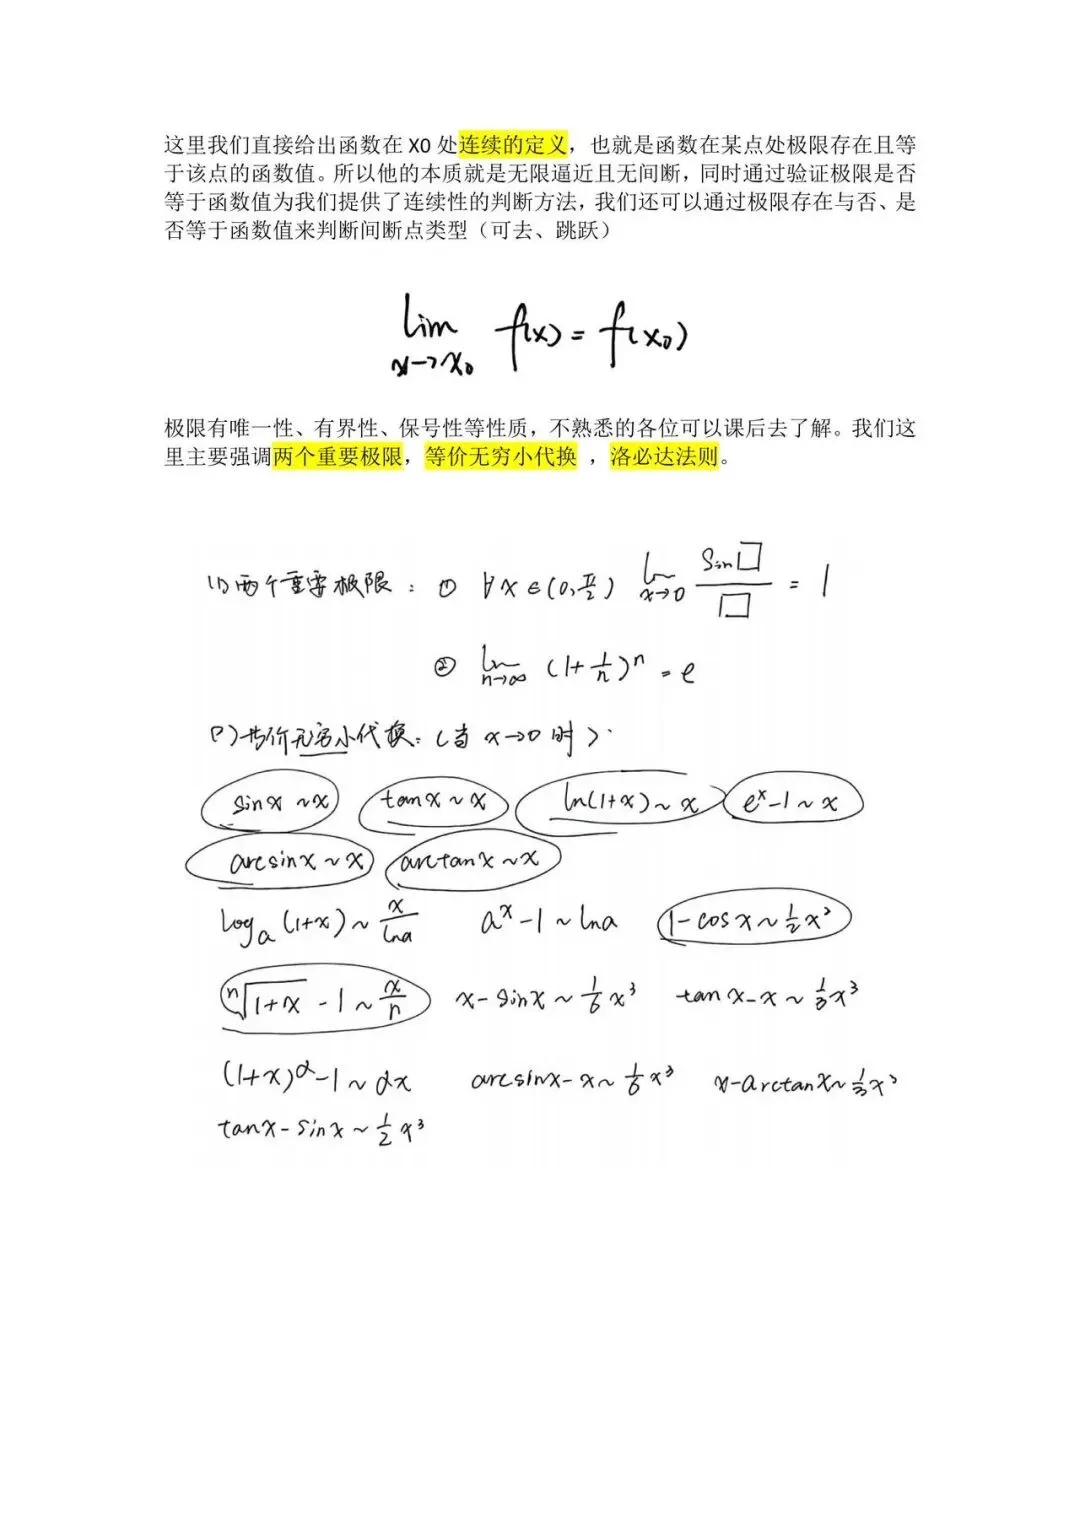 这里我们直接给出函数在 X0 处连续的定义，也就是函数在某点处极限存在且等
于该点的函数值。所以他的本质就是无限逼近且无间断，同时通过验证极限是否
等于函数值为我们提供了连续性的判断方法，我们还可以通过极限存在与否、是
否等于函数值来判断间断点类型（可去、跳跃）
lim f(x) = f(x₀)
x→x₀
极限有唯一性、有界性、保号性等性质，不熟悉的各位可以课后去了解。我们这
里主要强调两个重要极限，等价无穷小代换 ，洛必达法则。
(1) 两个重要极限： ① ∀x∈(0,π/2) lim x→0 sin□/□ = 1
② lim n→∞ (1+1/n)ⁿ = e
(2) 等价无穷小代换：(当 x→0 时)：
sinx ~ x tanx ~ x ln(1+x) ~ x eˣ-1 ~ x
arcsinx ~ x arctanx ~ x
logₐ(1+x) ~ x/lna aˣ-1 ~ lna 1-cosx ~ ½x²
ⁿ√1+x -1 ~ x/n x-sinx ~ 1/6 x³ tanx-x ~ 1/3 x³
(1+x)^α-1 ~ αx arcsinx-x ~ 1/6 x³ x-arctanx ~ 1/3 x³
tanx-sinx ~ 1/2 x³